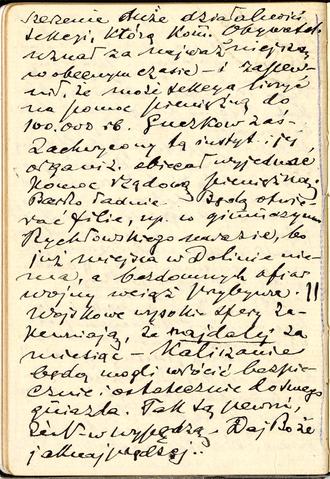 szerzenie duże działalności
sekcji, którą Kom. Obywatel.
uznał za najważniejszą
w obecnym czasie – i zapew-
nił, że może sekcya liczyć
na pomoc pieniężną do
100.000 rb. Guczkow zaś
zachwycony tą instyt. i jej
organiz. obiecał wyjednać
pomoc rządową pieniężną.
Bardzo ładnie. Będą otwie-
rać filie, np. w gimnazyum
Rychłowskiego narazie, bo
już miejsca w Dolinie nie-
ma, a bezdomnych ofiar
wojny wciąż przybywa. !!
Wojskowe wysokie sfery za-
pewniają, że najdalej za
miesiąc – Kaliszanie
będą mogli wrócić bezpie-
cznie i ostatecznie do swego
gniazda. Tak są pewni,
że N-ów wypędzą – Daj Boże
jaknajprędzej..